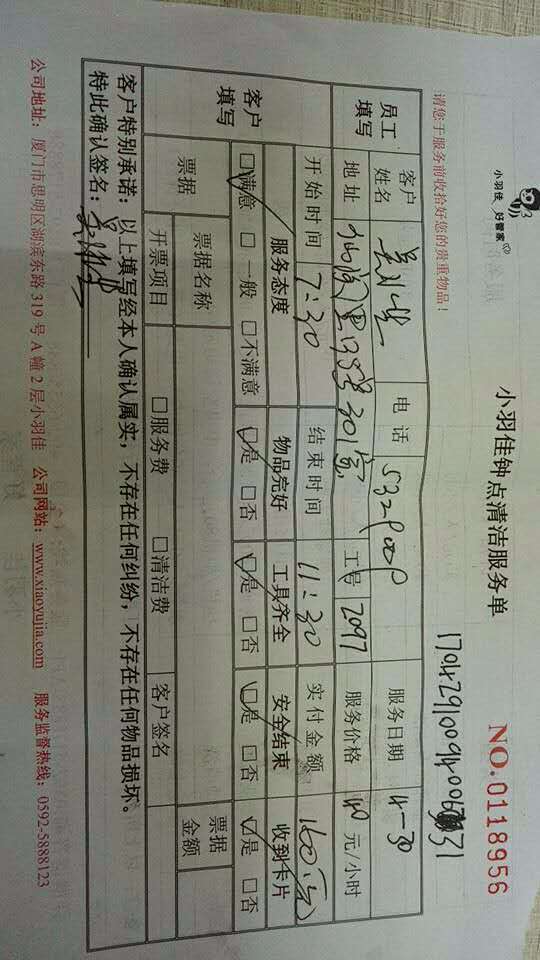 小羽佳 好管家
小羽佳钟点清洁服务单
NO.0118956
请您于服务前收拾好您的贵重物品！
员工填写
客户姓名
电话 5329009
服务日期 4-30
地址
301室
工号 2097
服务价格 40 元/小时
开始时间 7:30
结束时间 11:30
实付金额 160元
客户填写
服务态度 物品完好 工具齐全 安全结束 收到卡片
☑满意 □一般 □不满意 ☑是 □否 ☑是 □否 ☑是 □否 ☑是 □否
票据
票据名称
票据金额
开票项目 □服务费 □清洁费 客户签名
客户特别承诺：以上填写经本人确认属实，不存在任何纠纷，不存在任何物品损坏。
特此确认签名：
公司地址：厦门市思明区湖滨东路 319 号 A 幢 2 层小羽佳 公司网站：www.xiaoyujia.com 服务监督热线：0592-5888123